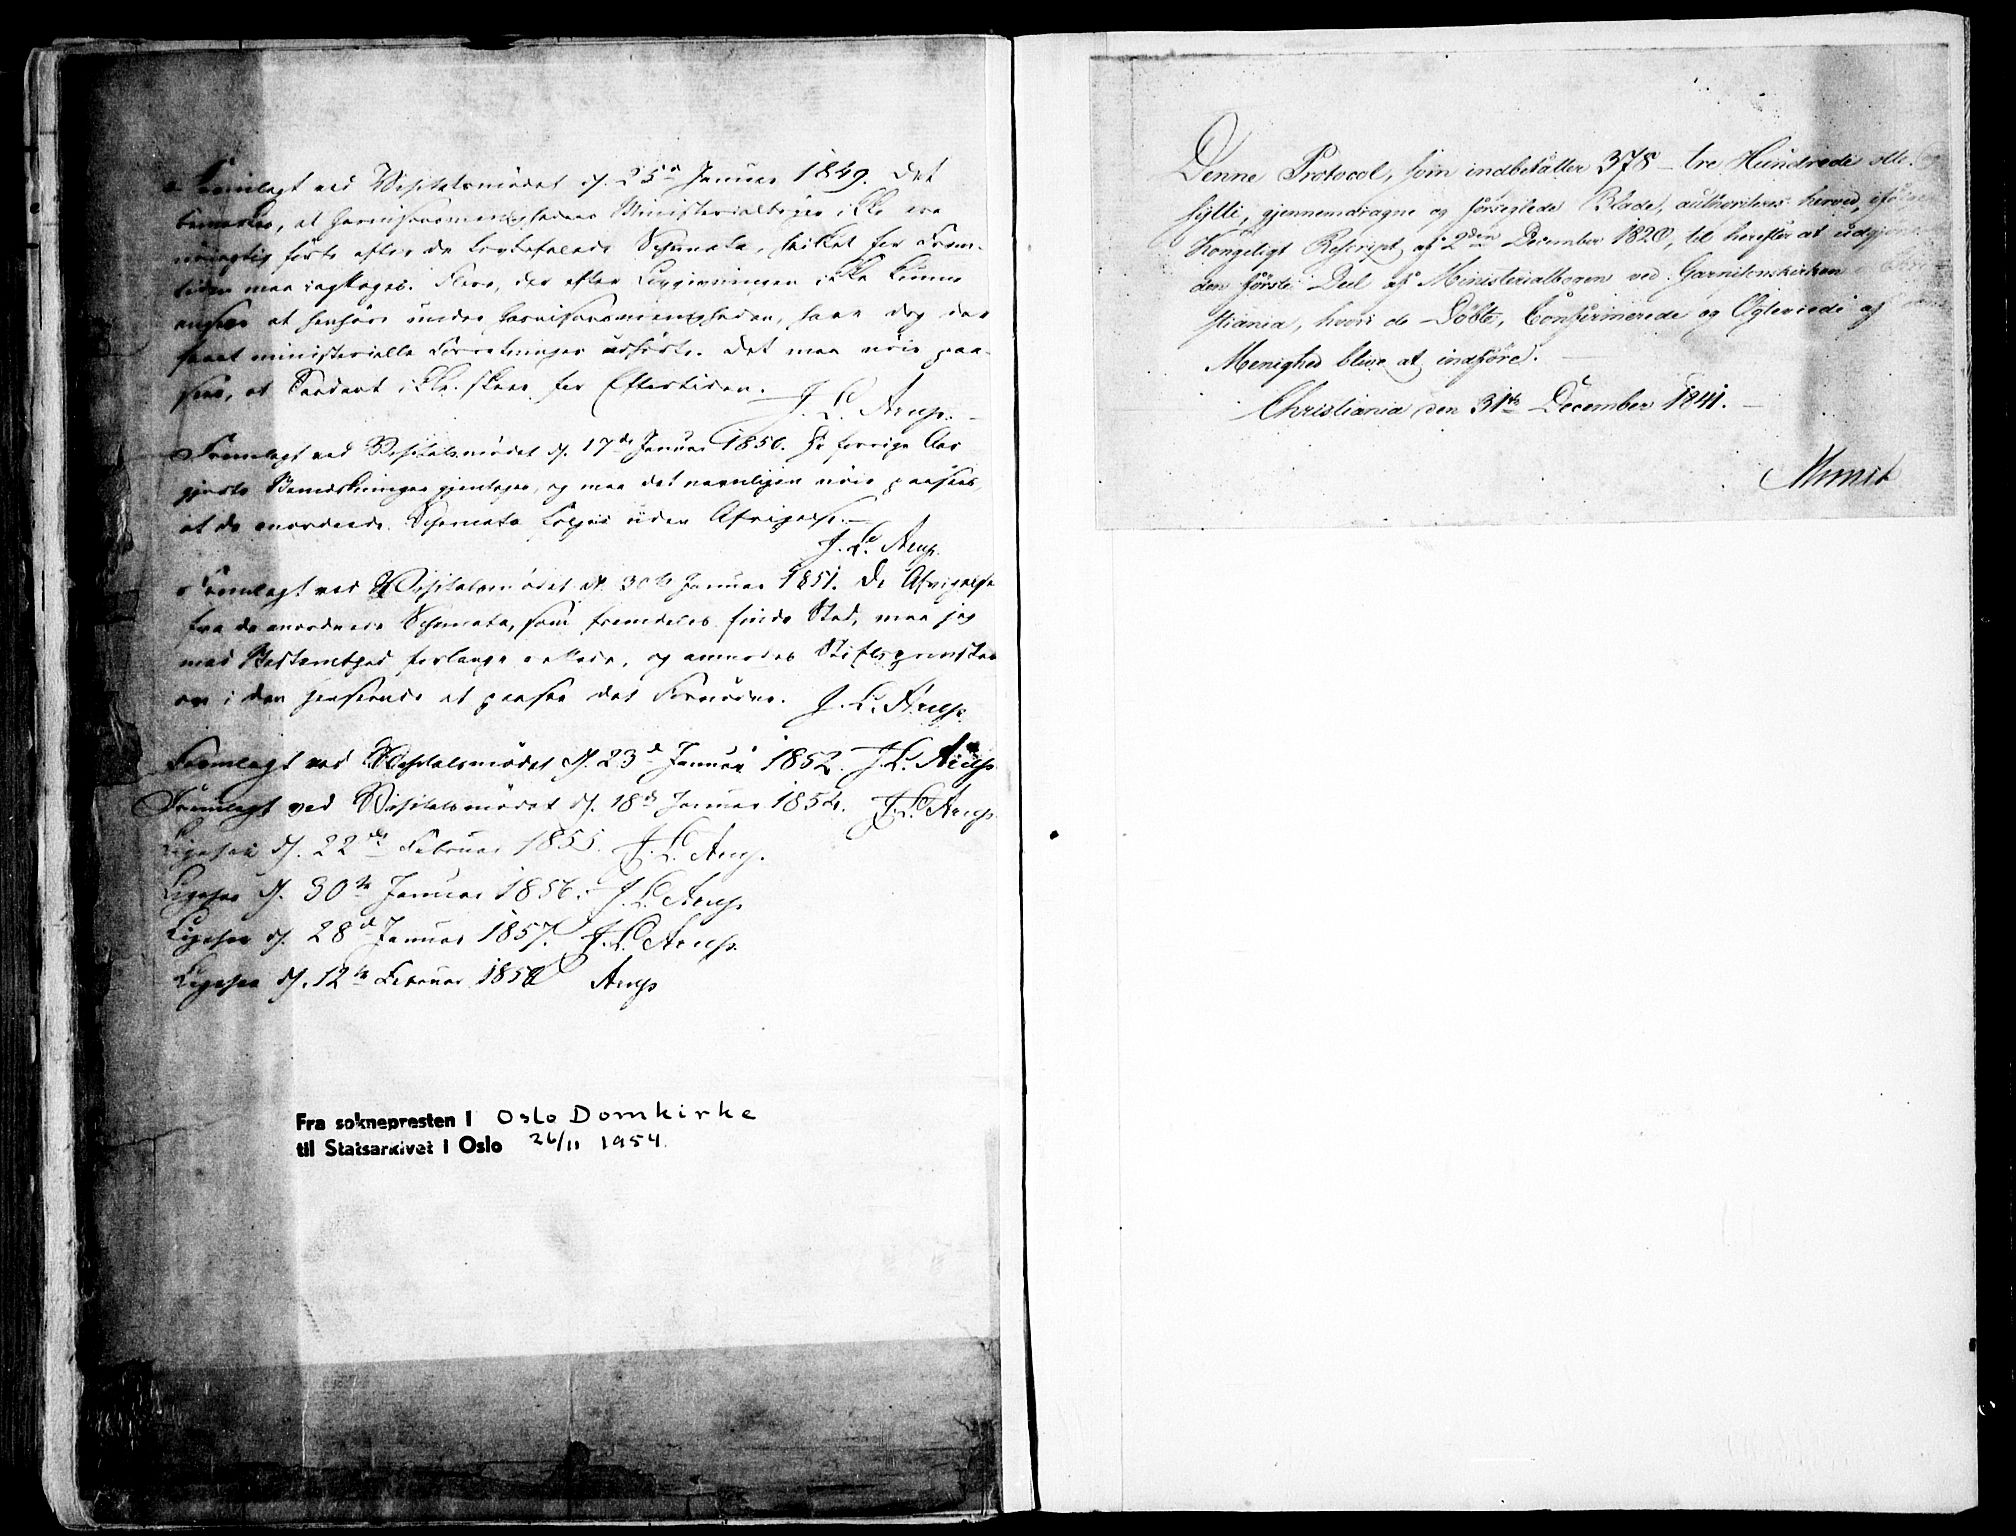 Fremlagt ved Visitatsmødet d. 25d Januar 1849. Det
bemærkes, at Garnisonsmenighedens Ministerialbøger ikke ere
nøiagtig førte efter de befalede Schemata, hvilket for Frem-
tiden maa iagttages. Flere, der efter Lovgivningen ikke kunne
ansees at henhøre under Garnisonsmenigheden, have dog der
faaet ministerielle Forretninger udførte. Det maa nøie paa-
sees, at Saadant ikke skeer for Eftertiden.
J. L. Arup.
Fremlagt ved Visitatsmødet d. 17de Januar 1850. De forrige Aar
gjorte Bemærkninger gjentages, og maa det navnligen nøie paasees,
at de anordnede Schemata følges uden Afvigelse.
J. L. Arup.
Fremlagt ved Visitatsmødet d. 30te Januar 1851. De Afvigelser
fra de anordnede Schemata, som fremdeles finde Sted, maa jeg
med Bestemthed forlange rettede, og anmodes Stiftsprovsten
om i den Henseende at paasee det Fornødne. J. L. Arup.
Fremlagt ved Visitatsmødet d. 23d Januar 1852. J. L. Arup
Fremlagt ved Visitatsmødet d. 18de Januar 1854. J. L. Arup.
Ligesaa d. 22de Februar 1855. J. L. Arup.
Ligesaa d. 30te Januar 1856. J. L. Arup.
Ligesaa d. 28d Januar 1857. J. L. Arup.
Ligesaa d. 12te Februar 1858 Arup
Fra soknepresten i Oslo Domkirke
til Statsarkivet i Oslo 26/11 1954.
Denne Protocol, som indbefatter 378 - tre Hundrede otte og
sytti, gjennemdragne og forseglede Blade, authoriseres herved, ifølge
Kongeligt Rescript af 2den December 1820, til herefter at udgjøre
den første Deel af Ministerialbogen ved Garnisonskirken i Chri-
stiania, hvori de Døbte, Confirmerede og Ægteviede af
Menighed blive at indføre.
Christiania den 31te December 1841.